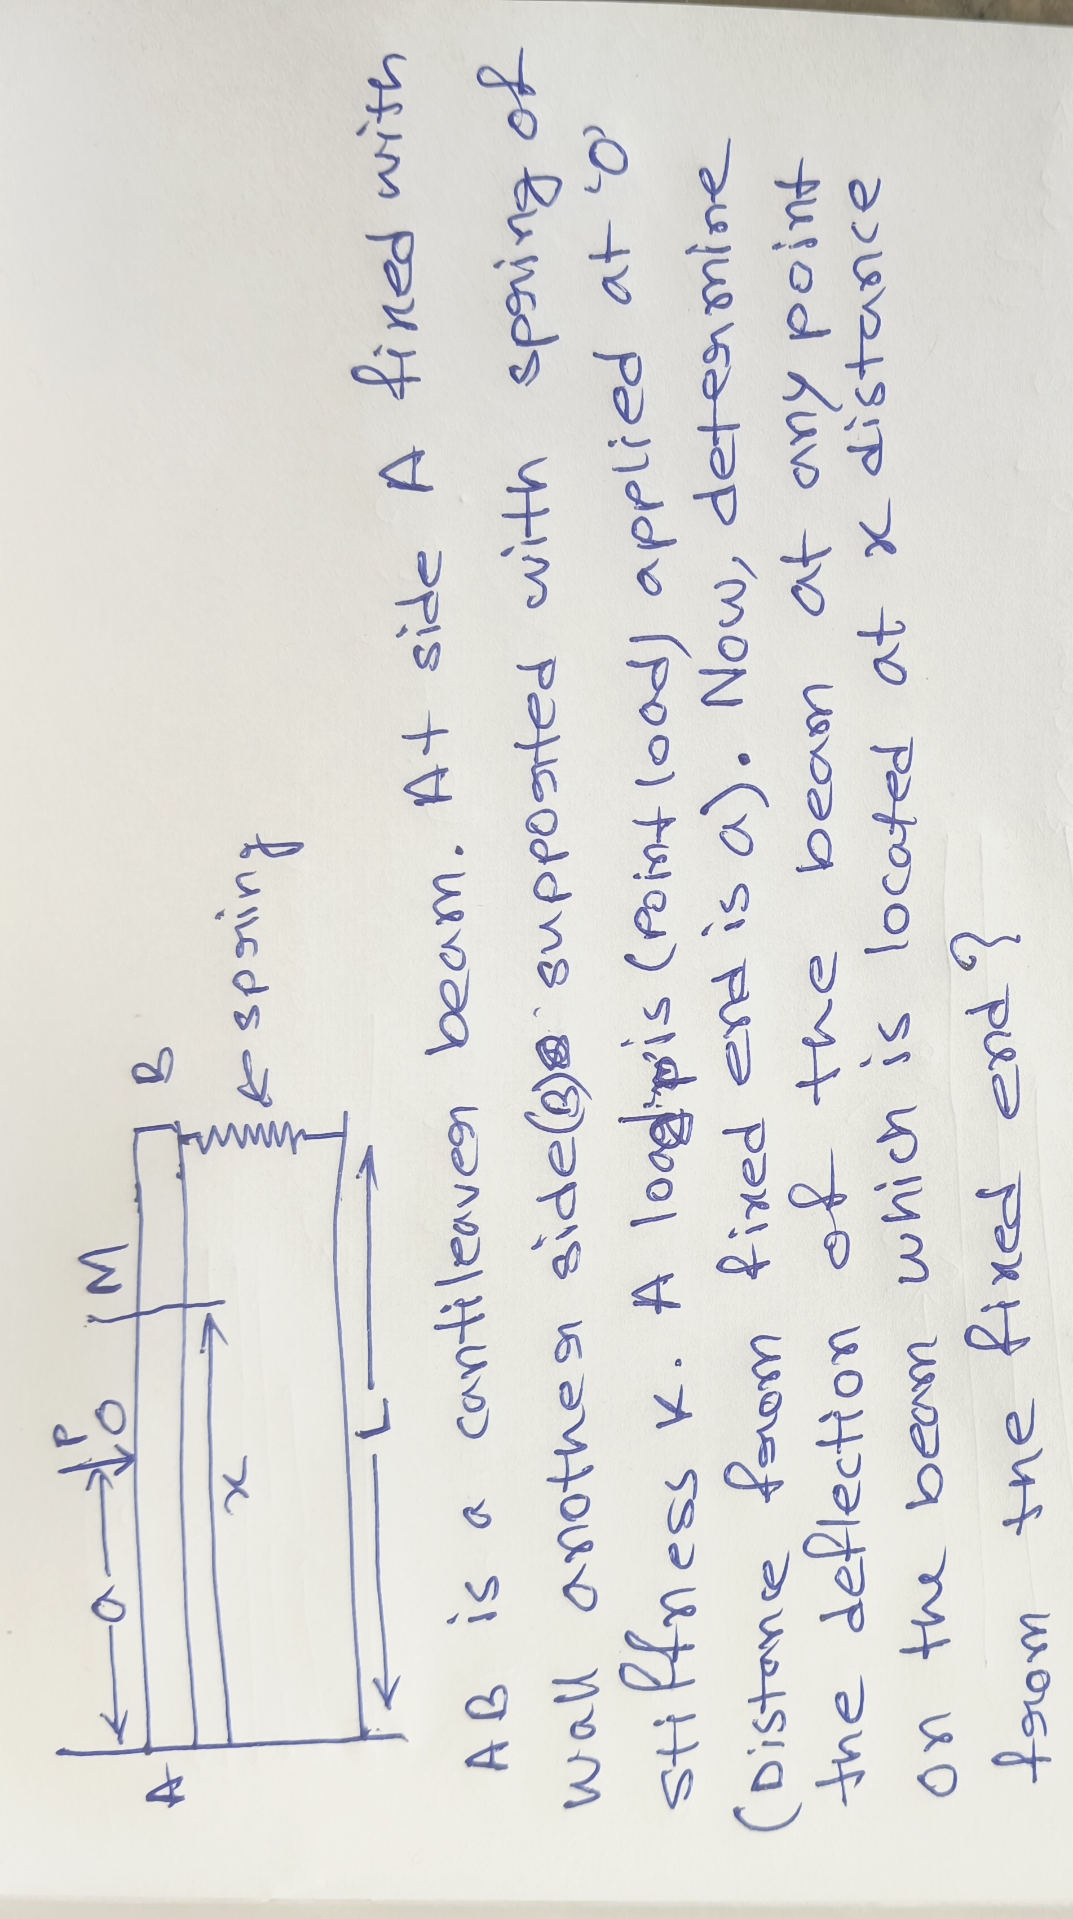 a
P
O
M
A
B
x
← spring
L
AB is a cantileaver beam. At side A fixed with
wall another side(B) supported with spring of
stiffness K. A load is (Point load) applied at 'O'
(Distance from fixed end is a). Now, determine
the deflection of the beam at any point
on the beam which is located at x distance
from the fixed end?